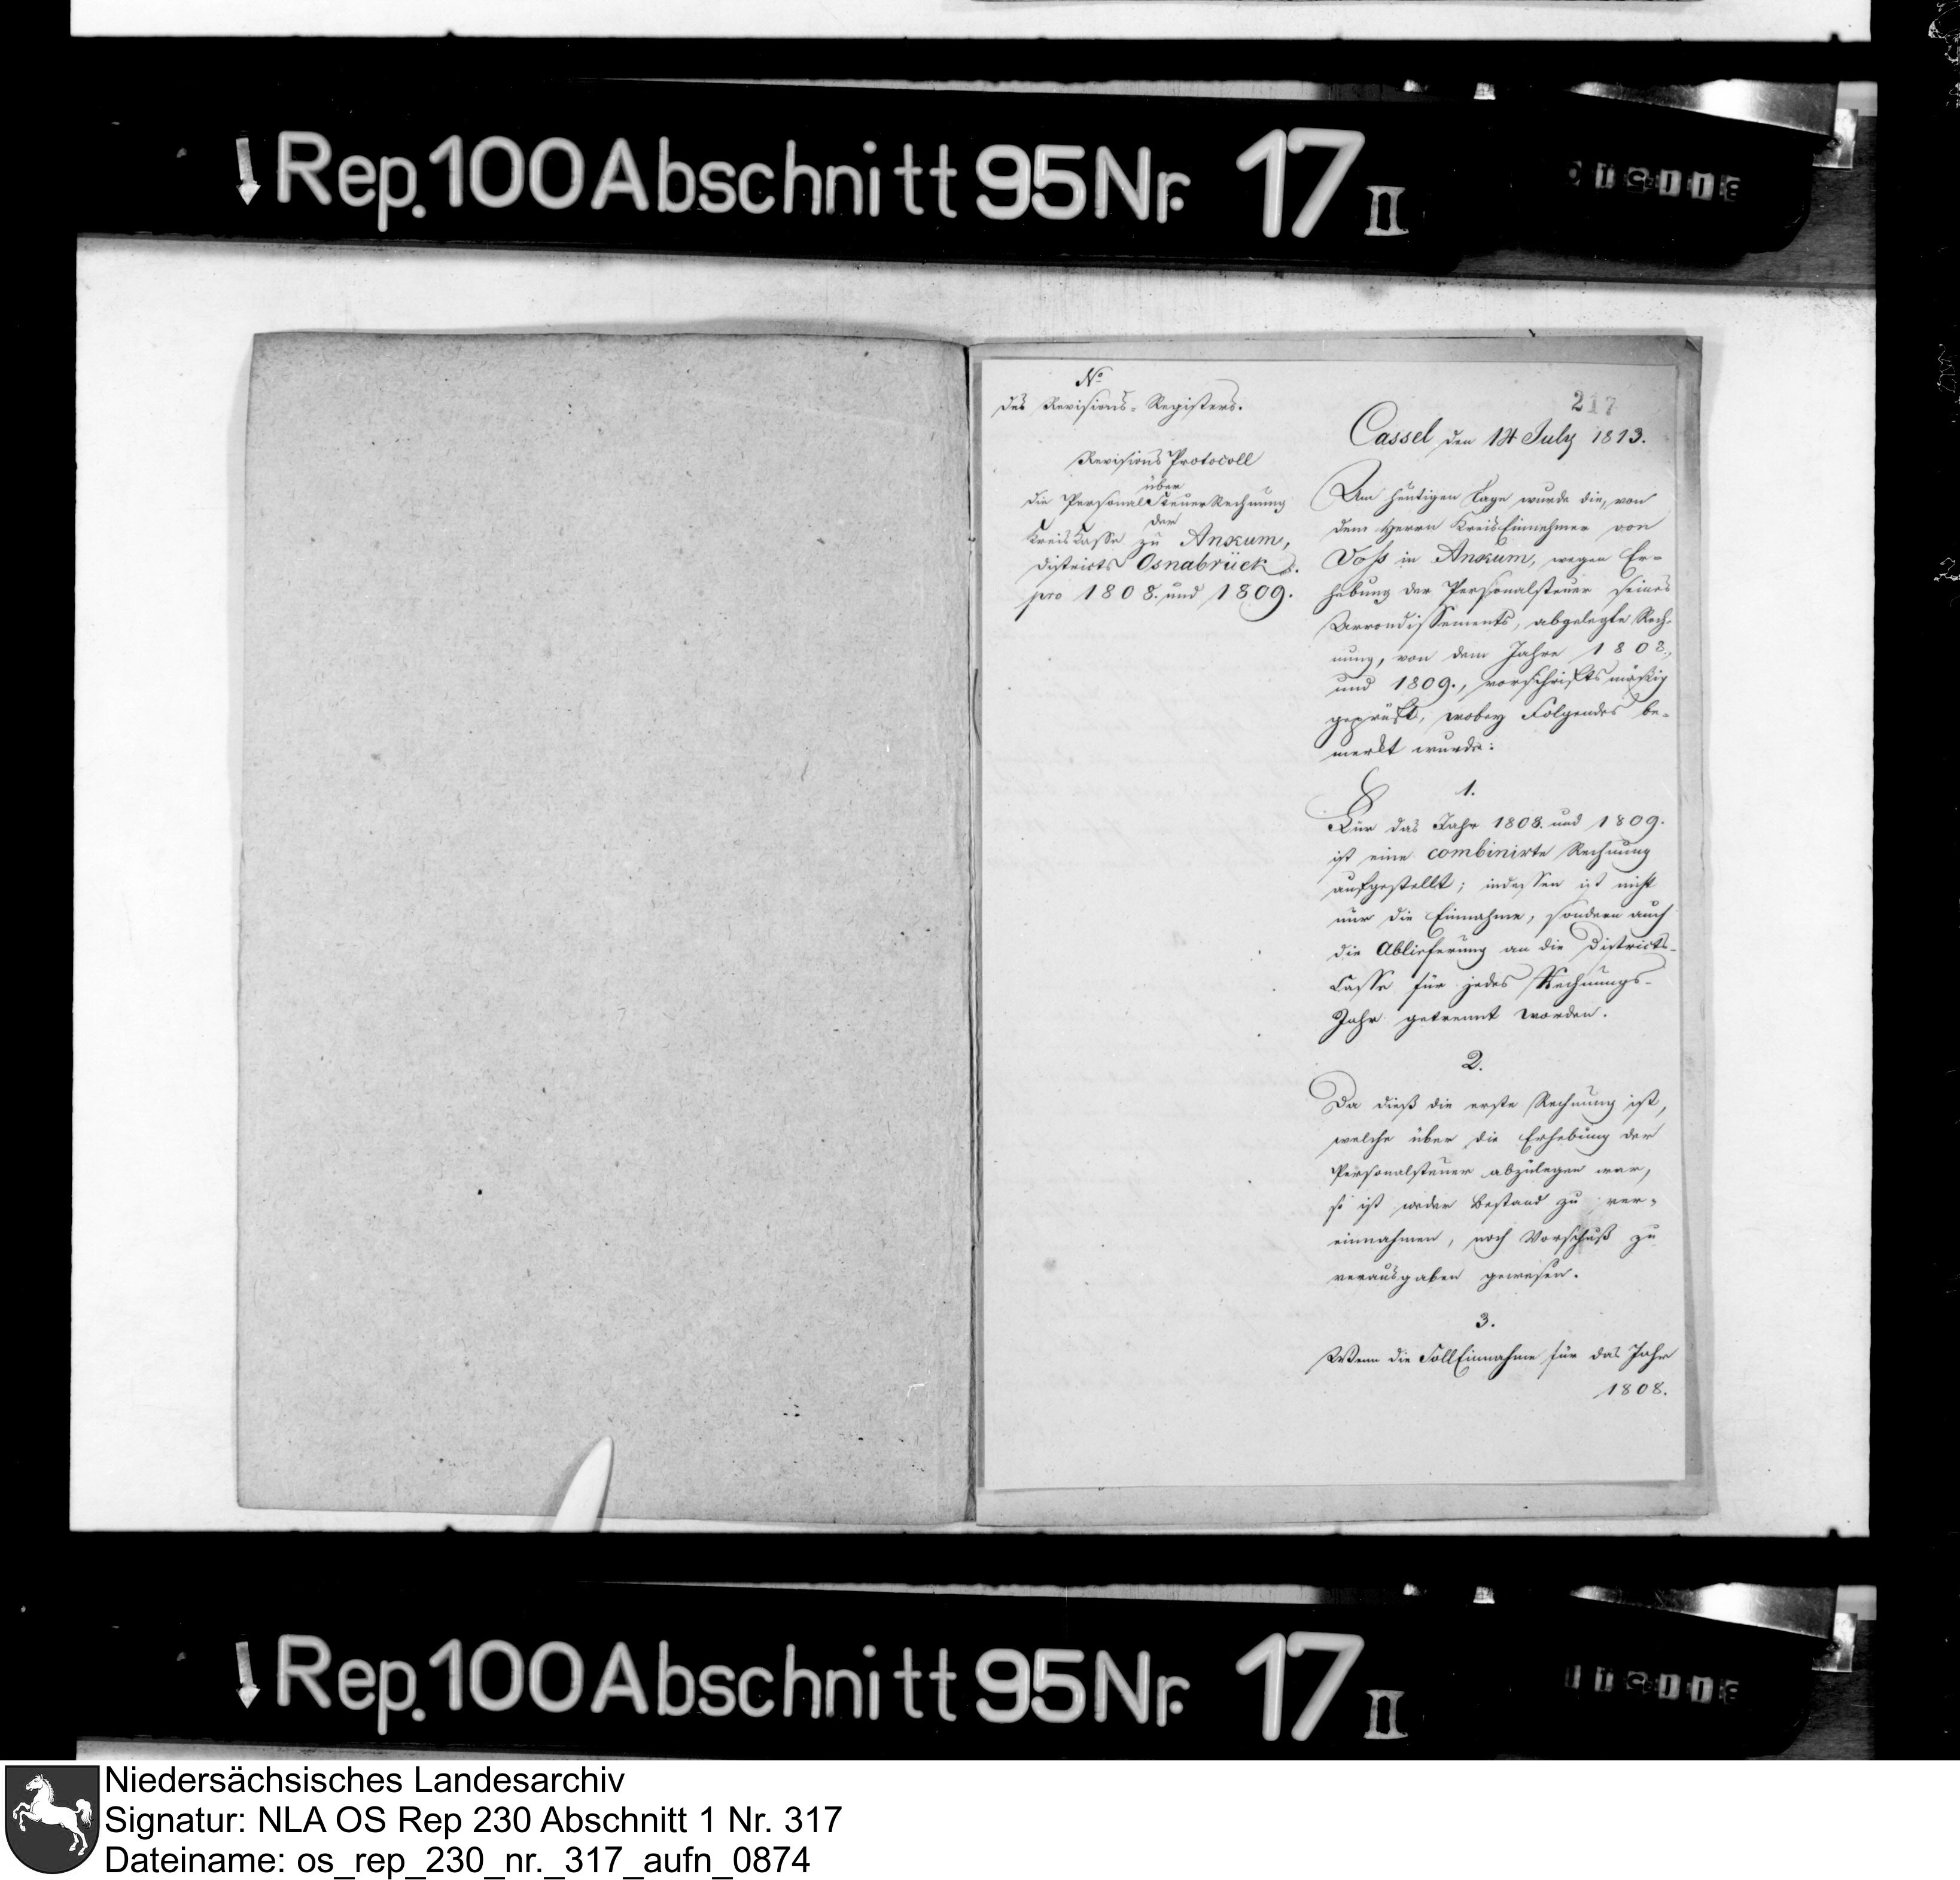 Rep. 100 Abschnitt 95 Nr. 17 II
No
des Revisions-Registers.
Revisions Protocoll
über
die Personalsteuer Rechnung
der
Kreis Casse zu Ankum,
Districts Osnabrück
pro 1808. und 1809.
217
Cassel den 14 July 1813.
Am heutigen Tage wurde die, von
dem Herrn Kreis Einnehmer von
Voß in Ankum, wegen Er-
hebung der Personalsteuer seines
Arrondissements, abgelegte Rech-
nung, von dem Jahre 1808.,
und 1809., vorschriftsmäßig
geprüft, wobey Folgendes be-
merkt wurde:
1.
Für das Jahr 1808. und 1809.
ist eine combinirte Rechnung
aufgestellt; indessen ist nicht
nur die Einnahme, sondern auch
die Ablieferung an die Districts-
Casse für jedes Rechnungs-
Jahr getrennt worden.
2.
Da dieß die erste Rechnung ist,
welche über die Erhebung der
Personalsteuer abzulegen war,
so ist weder Bestand zu ver-
einnahmen, noch Vorschuß zu
verausgaben gewesen.
3.
Wenn die Soll Einnahme für das Jahr
1808.
Rep. 100 Abschnitt 95 Nr. 17 II
Niedersächsisches Landesarchiv
Signatur: NLA OS Rep 230 Abschnitt 1 Nr. 317
Dateiname: os_rep_230_nr._317_aufn_0874